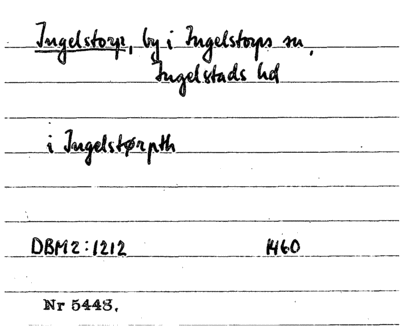 Ingelstorp, by i Ingelstorps sn,
Ingelstads hd
i Ingelstørpth
DBM2:1212 1460
Nr 5448.